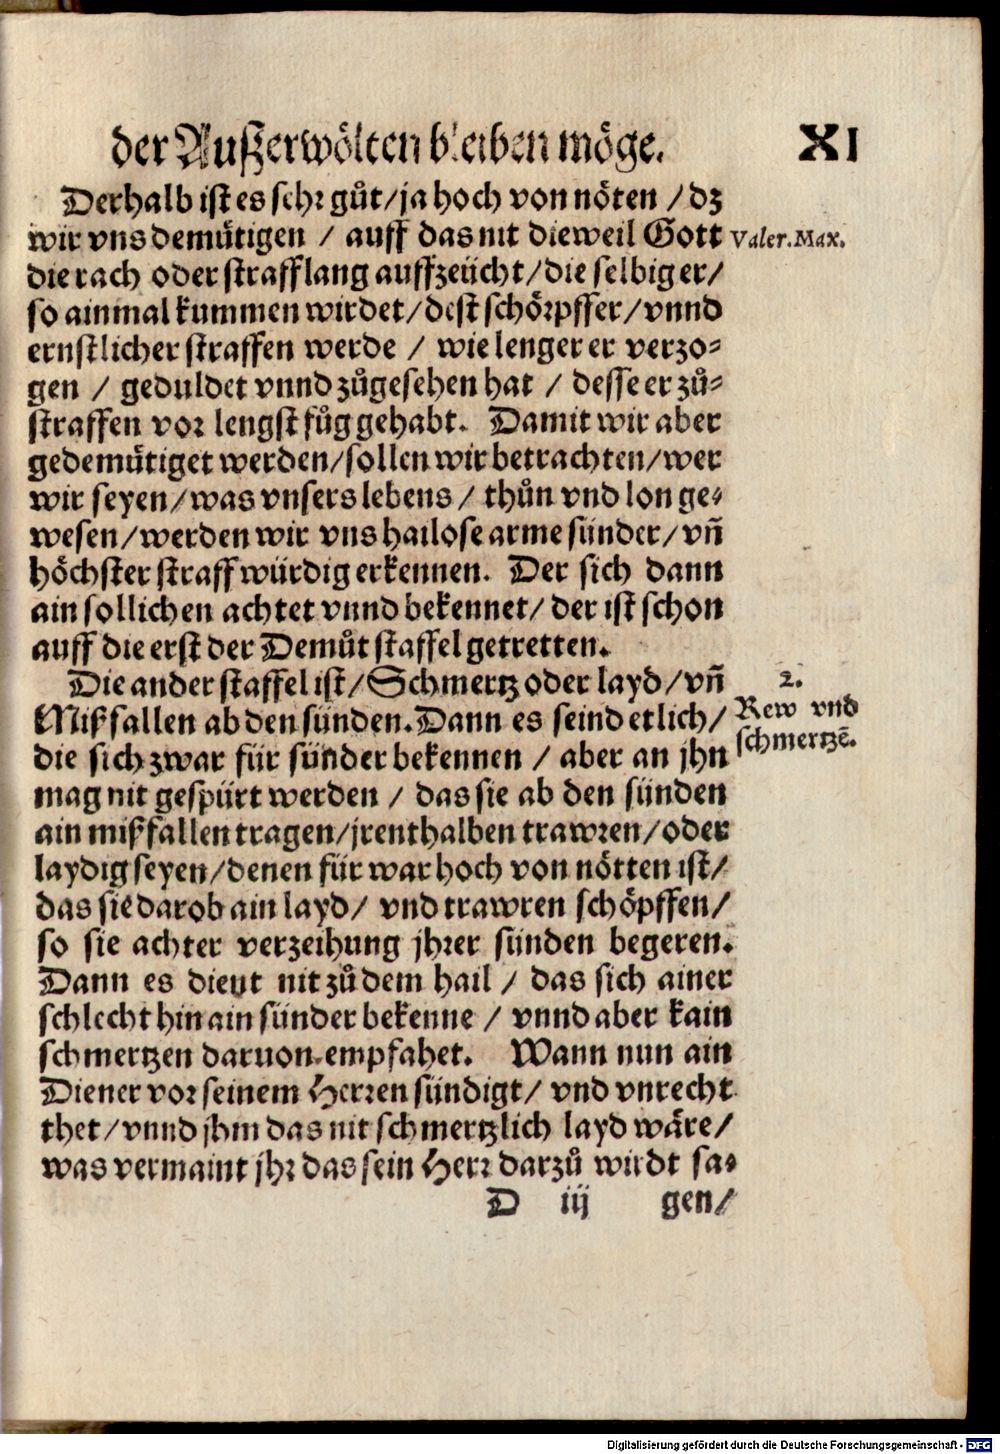 der Außerwölten bleiben möge. XI
Derhalb ist es sehr gůt/ja hoch von nöten / dz
wir vns demütigen / auff das nit dieweil Gott
Valer.Max.
die rach oder strafflang auffzeücht/die selbig er/
so ainmal kummen wirdet/dest schörpffer/vnnd
ernstlicher straffen werde / wie lenger er verzo-
gen / geduldet vnnd zůgesehen hat / desse er zů-
straffen vor lengst fůg gehabt. Damit wir aber
gedemütiget werden/sollen wir betrachten/wer
wir seyen/was vnsers lebens / thůn vnd lon ge-
wesen/werden wir vns hailose arme sünder/vñ
höchster straff würdig erkennen. Der sich dann
ain sollichen achtet vnnd bekennet/ der ist schon
auff die erst der Demůt staffel getretten.
Die ander staffel ist/Schmertz oder layd/vñ
2.
Mißfallen ab den sünden. Dann es seind etlich/
Rew vnd
schmertzẽ.
die sich zwar für sünder bekennen / aber an jhn
mag nit gespürt werden / das sie ab den sünden
ain mißfallen tragen/jrenthalben trawren/oder
laydig seyen/denen für war hoch von nötten ist/
das sie darob ain layd/ vnd trawren schöpffen/
so sie achter verzeihung jhrer sünden begeren.
Dann es dient nit zů dem hail / das sich ainer
schlecht hin ain sünder bekenne / vnnd aber kain
schmertzen daruon empfahet. Wann nun ain
Diener vor seinem Herren sündigt/ vnd vnrecht
thet/vnnd jhm das nit schmertzlich layd wäre/
was vermaint jhr das sein Herr darzů wirdt sa-
D iij gen/
Digitalisierung gefördert durch die Deutsche Forschungsgemeinschaft - DFG